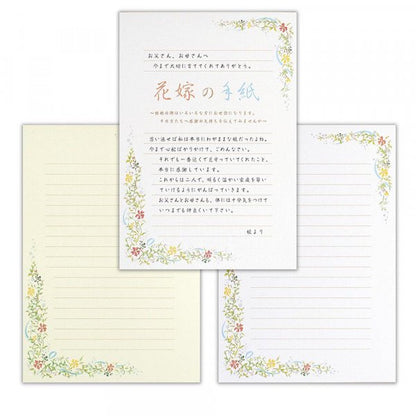 お父さん、お母さんへ
今まで大切に育ててくれてありがとう。
花嫁の手紙
～結婚の際はいろいろな方にお世話になります。
その方たちへ感謝の気持ちを伝えてみませんか～
思い返せば私は本当にわがままな娘だったよね。
今まで心配ばかりかけて、ごめんなさい。
それでも一番近くで見守っていてくれたこと、
本当に感謝しています。
これからは二人で、明るく温かい家庭を築い
ていけるようにがんばっていきます。
お父さんとお母さんも、体には十分気をつけて
いつまでも仲良くして下さい。
娘より